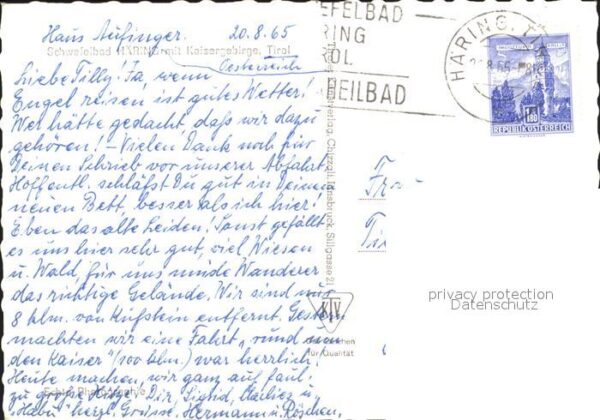 Haus Aufinger. 20.8.65
Schwefelbad HÄRING mit Kaisergebirge, Tirol
Oesterreich
Liebe Tilly! Ja, wenn
Engel reisen ist gutes Wetter!
Wer hätte gedacht daß wir dazu
gehören! - Vielen Dank noch für
Deinen Schrieb vor unserer Abfahrt,
Hoffentl. schläfst Du gut in Deinem
neuen Bett, besser als ich hier!
Eben das alte Leiden. Sonst gefällt
es uns hier sehr gut, viel Wiesen
u. Wald, für uns müde Wanderer
das richtige Gelände. Wir sind nur
8 klm. von Kufstein entfernt. Gestern
machten wir eine Fahrt „rund um
den Kaiser" (100 klm) war herrlich.
Heute machen wir ganz auf faul,
zu große Hitze. Dir, Sigrid, u.
herzl. Grüsse. Hermann u. Röschen.
EFELBAD
RING
ROL
HEILBAD
HÄRING, TIROL
REPUBLIK ÖSTERREICH
1.80
Chizzali, Innsbruck, Sillgasse 21
Fr
KTV
für Qualität
privacy protection
Datenschutz